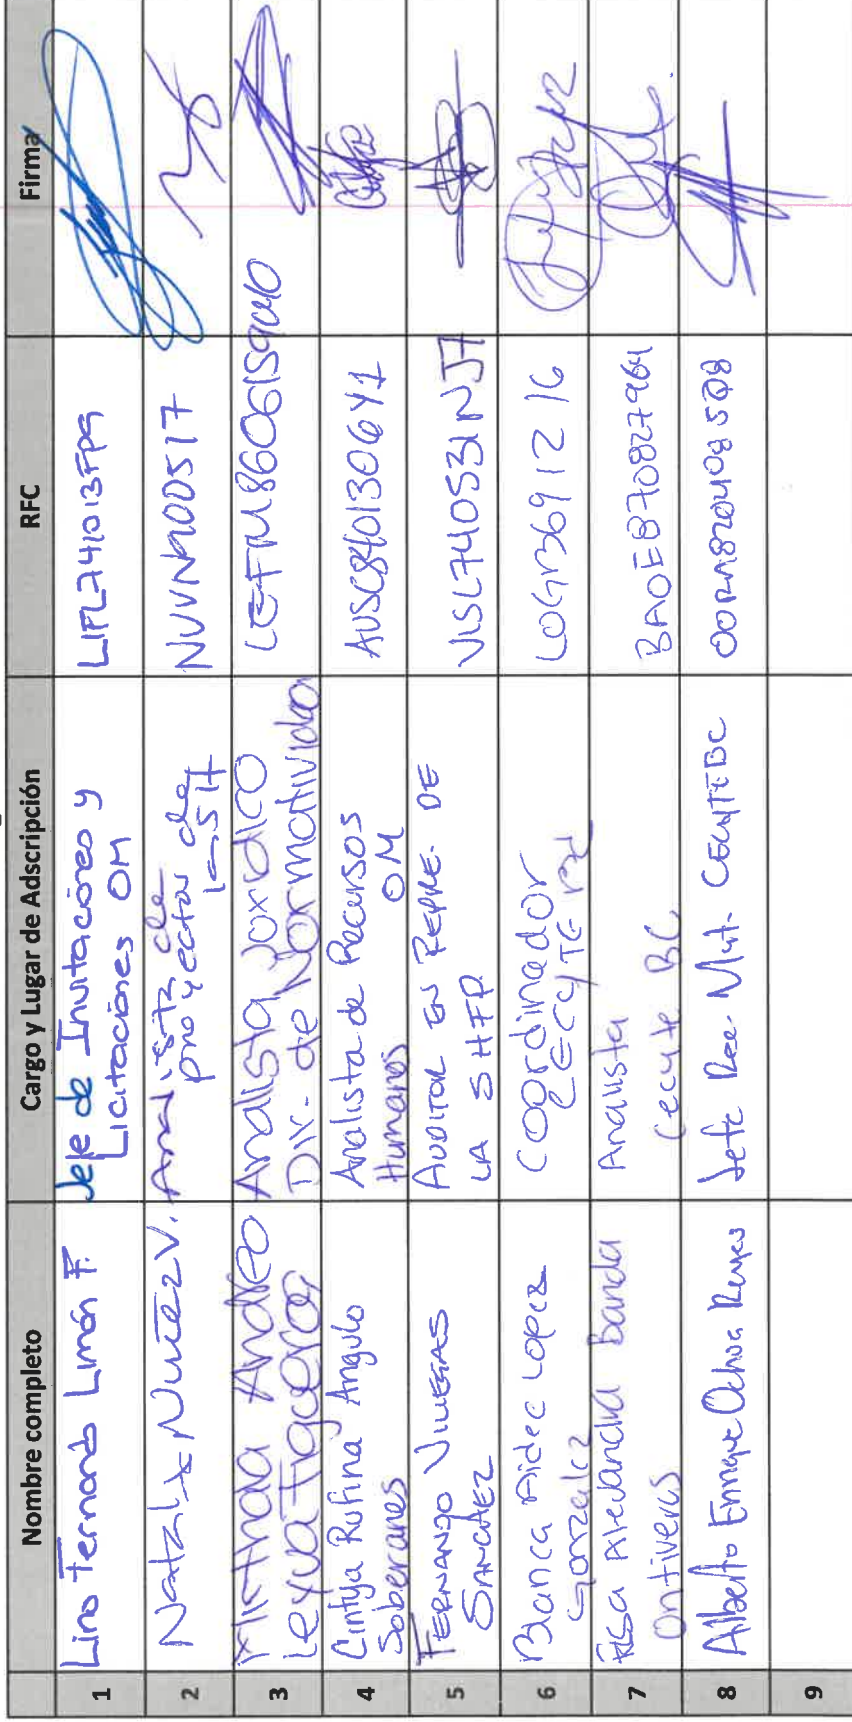 Nombre completo Cargo y Lugar de Adscripción RFC Firma
1 Lino Fernando Limón F. Jefe de Invitaciones y Licitaciones OM LIFL741013FP9
2 Nataly Nuñez V. Analista de proyectos de NUVN900517
3 Mirthda Andrea Leyva Figueroa Analista Jurídico Dir. de Normatividad LEFM860615
4 Cintya Rufina Angulo Soberanes Analista de Recursos Humanos OM AUSC8401306Y1
5 FERNANDO VILLEGAS SANCHEZ AUDITOR EN REPRE. DE LA SHFP VISL740531NJ7
6 Blanca Aidee Lopez Gonzalez Coordinador CECYTE LOGB691216
7 Elsa Alejandra Banda Ontiveros Analista Cecyte BC BAOE870827961
8 Alberto Enrique Ochoa Reyes Jefe Rec. Mat. CECYTEBC OORA820408SQ8
9